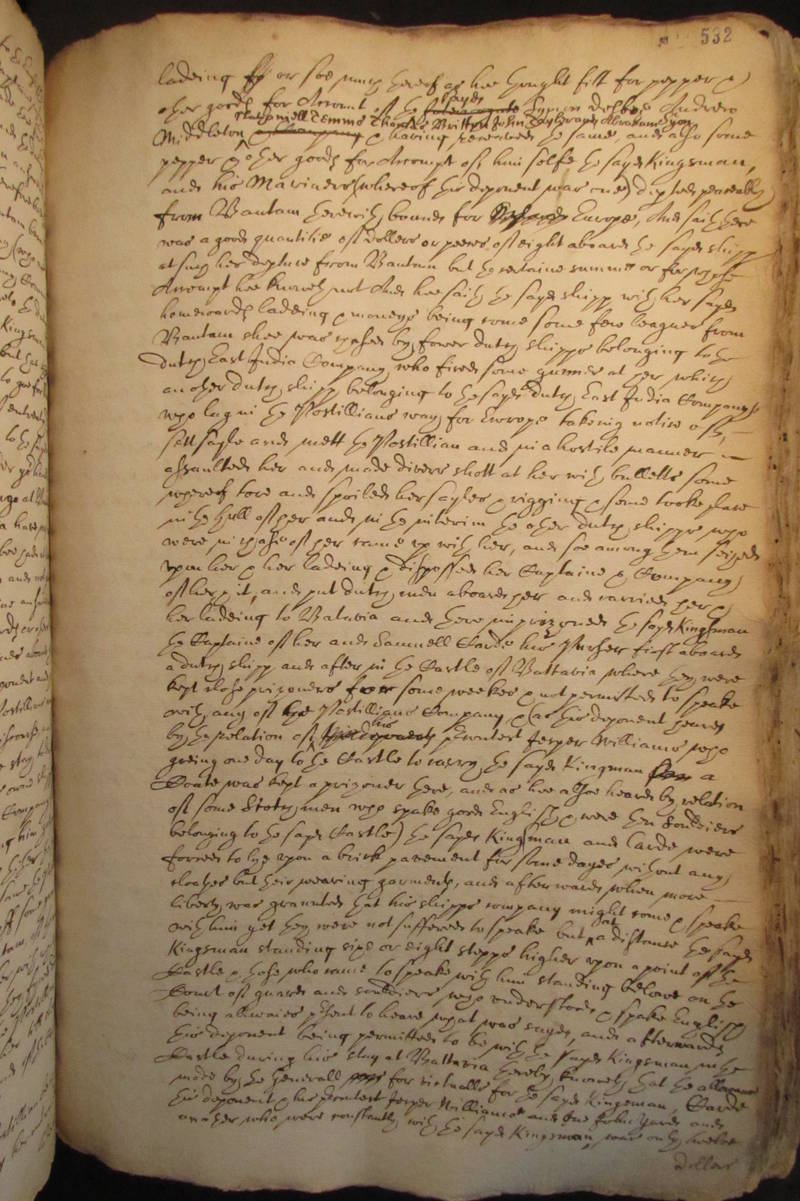 532
ladeing or soe much thereof as hee thought fitt for pepper &
other goods for Account of the sayd Symon Delboe Andrew
Thompnell Temms Thomas Britten John Abrahamson
Middleton & having received the same, and also some
pepper & other goods for Accompt of him selfe the sayd Kingsman,
and his Mariners (whereof this deponent was one) dispeeded peaceably
from Bantam therewith bound for Europe, And saith there
was a good quantitie of dollers or peeces of eight aboard the sayd shipp
at such her depture from Bantam but the certaine summe or for whose
Accompt hee knoweth not And hee saith the sayd shipp with her sayd
homewards ladeing & moneys being come some few leagues from
Bantam shee was chased by fower dutch shipps belonging to the
dutch East India Company, who fired some gunnes at her which
another dutch shipp belonging to the sayd dutch East India Company
who lay in the Postillians way for Europe takeing notice of,
sett sayle and mett the Postillian and in a hostile manner
assaulted her and made divers shott at her with bulletts some
whereof tore and spoiled her sayles & rigging & some tooke place
in the hull of her and in the interim the other dutch shipps who
were in chase of her came up with her, and soe among them seized
upon her & her ladeing & dispossest her Captaine & Company
of her & it, and put dutch men aboard her and carried her &
her ladeing to Batavia and there imprizoned the sayd Kingsman
the Captaine of her and Samuell Lardo his Purser first aboard
a dutch shipp and after in the Castle of Battavia where they were
kept close prizoners for some weekes & not permitted to speake
with any of the Postillians Company & (as this deponent heard
by the relation of his precontest Jesper Williams who
going one day to the Castle to carry the sayd Kingsman a
Coate was kept a prizoner there, and as hee alsoe heard by relation
of some Scotchmen who spake good English & were then Souldiers
belonging to the sayd Castle) the sayd Kingsman and Lardo were
forced to lye upon a brick pavement for some dayes without any
cloathes but their wearing garments, and afterwards when more
liberty was graunted that his shipps company might come & speake
with him yet they were not suffered to speake but at a distance the sayd
Kingsman standing six or eight stepps higher upon a point of the
Castle & those who came to speake with him standing below on the
Court of guard and souldiers who understood & spake English
being allwaies present to heare what was sayd, and afterwards
this deponent being permitted to be with the sayd Kingsman in the
Castle during his stay at Battavia thereby knoweth that the allowance
made by the Generall for victualls for the sayd Kingsman, Lardo
this deponent & his precontest Jesper Williams and one John Yards and
another who were constantly with the sayd Kingsman, was only twelve
dollars